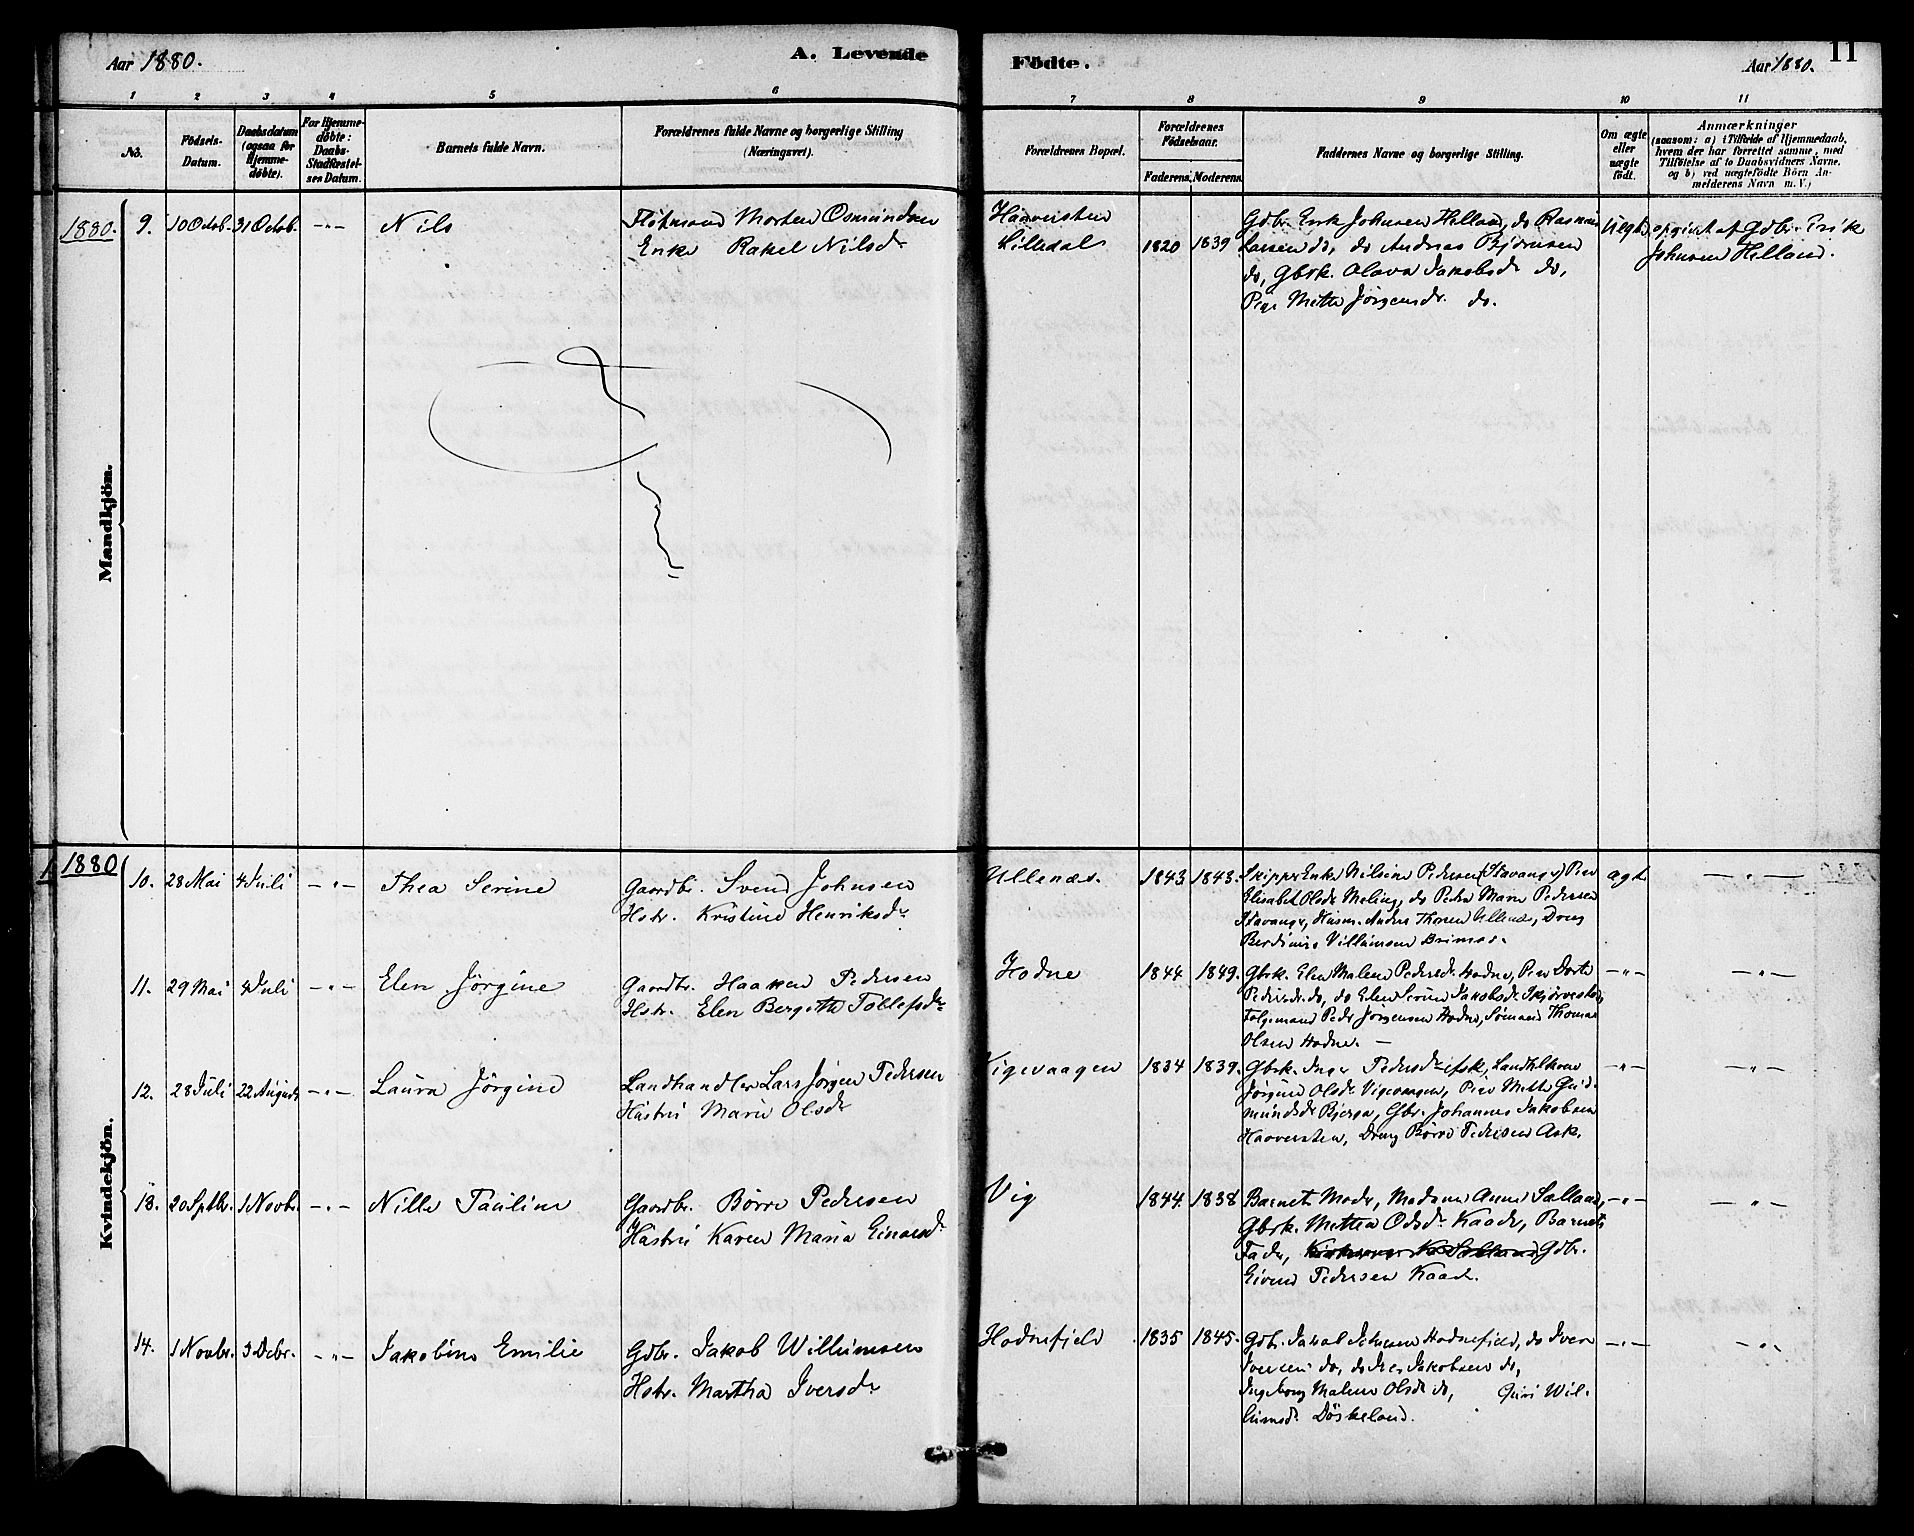 Aar 1880.
A. Levende
Födte.
Aar 1880.
11
1 2 3 4 5 6 7 8 9 10 11
No.
Födsels-Datum.
Daabsdatum (ogsaa for Hjemme-döbte).
For Hjemme-döbte: Daabs-Stadfæstel-ses Datum.
Barnets fulde Navn.
Forældrenes fulde Navne og borgerlige Stilling (Næringsvei).
Forældrenes Bopæl.
Forældrenes Födselsaar.
Faderens. Moderens.
Faddernes Navne og borgerlige Stilling.
Om ægte eller uægte födt.
Anmærkninger
(saasom: a) i Tilfælde af Hjemmedaab,
hvem der har forrettet samme, med
Tilföielse af to Daabsvidners Navne.
og b) ved uægtefödte Börn An-
melderens Navn m. V.)
Mandkjön.
1880. 9. 10 Octob. 31 Octob. -"- Nils
Morten Osmundsen
Enke Rakel Nilsdr
Haaversten
Lilledal
1820 1839
Gdbr. Erik Johnsen Helland, do Rasmus
Larsen do, do Andreas Bjørnsen
do, Gbrk. Olava Jakobsdr do,
Pige Mette Jørgensdr. do.
Uægte
opgivet af Gdbr. Erik
Johnsen Helland.
Kvindekjön.
1880
10. 28 Mai 4 Juli -"- Thea Serine
Gaardbr. Svend Johnsen
Hstr. Kristine Henriksdr
Ullenæs.
1843 1843.
Skipper Enke Nilsine Pedersen (Stavanger) Pige
Elisabet Olsdr Meling, do Petra Marie Pedersen
Stavanger, Husm. Anders Thorsen Ullenæs, Dreng
Villumsen Brimse.
ægte
-"-
11. 29 Mai 4 Juli -"- Elen Jørgine
Gaardbr. Haaken Pedersen
Hstr. Elen Bergitte Tollefsdr
Hodne
1844 1849.
Gbrk. Elen Malene Pedersdr Hodne, Pige Dorte
Pedersdr do, do Elen Serine Jakobsdr
Folgemand Peder Jørgensen Hodne, Sømand Thomas
Olsen Hodne. -
-"-
-"-
12. 28 Juli 22 August -"- Laura Jørgine
Landhandler Lars Jørgen Pedersen
Hustru Marie Olsdr
Vigevaagen
1834 1839.
Gbrk. Inger Pedersdr Ask,
Jørgine Olsdr Vigevaagen, Pige Mette Gud-
mundsdr Bjergø, Gbr. Johannes Jakobsen
Haaversten, Dreng Børre Pedersen Ask.
-"-
-"-
13. 20 Sptbr. 1 Novbr. -"- Nille Pauline
Gaardbr. Børre Pedersen
Hustru Karen Maria Einarsdr
Vig
1844. 1838
Barnets Moder, Madame Anne Salland,
Gbrk. Mettea Odsdr Kaade, Barnets
Fader, Gdbr.
Eivind Pedersen Kaade.
-"-
-"-
14. 1 Novbr. 5 Debr. -"- Jakobine Emilie
Gdbr. Jakob Willumsen
Hstr. Martha Iversdr
Hodnefjeld
1835 1845.
Gdbr. Jakob Hodnefjeld, do Iver
Iversen do, do Jakobsen do,
Ingeborg Malene Olsdr do, Guri Wil-
lumsdr. Døskeland.
-"-
-"-